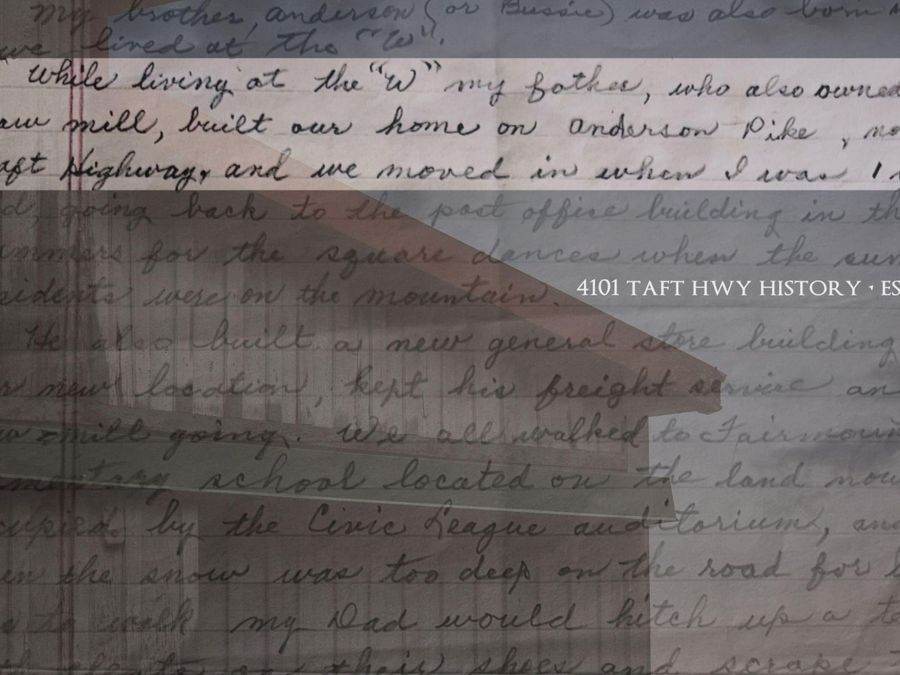 my brother, anderson (or Bussie) was also born
we lived at the "W".
While living at the "W" my father, who also owned
mill, built our home on anderson Pike,
Highway, and we moved in when I was
going back to the post office building in
for the square dances when the
were on the mountain.
4101 TAFT HWY HISTORY · ES
He also built a new general store building
new location, kept his freight service an
mill going. We all walked to Fairmoun
school located on the land now
by the Civic League auditorium, and
the snow was too deep on the road for
to walk my Dad would hitch up a te
their shoes and scrape